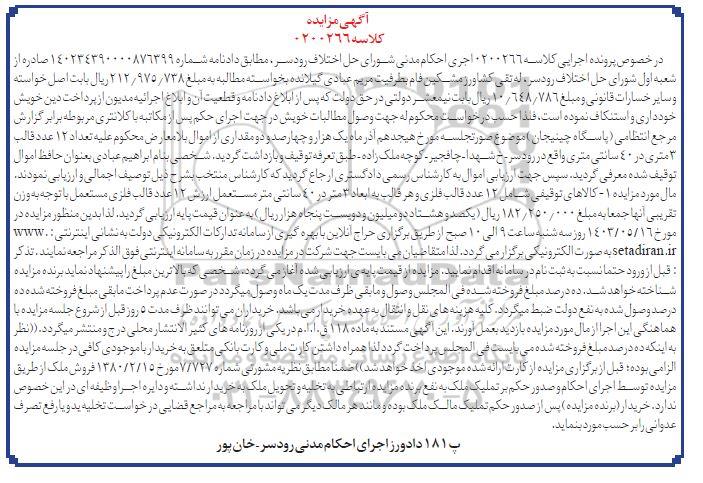 آگهی مزایده
کلاسه ۰۲۰۰۲۶۶
در خصوص پرونده اجرایی کلاسه ۰۲۰۰۲۶۶ اجری احکام مدنی شورای حل اختلاف رودسر، مطابق دادنامه شماره ۱۴۰۲۳۴۳۹۰۰۰۰۸۷۶۳۹۹ صادره از
شعبه اول شورای حل اختلاف رودسر، له تقی کشاورز مشکین فام بطرفیت مریم عبادی گیلانده بخواسته مطالبه به مبلغ ۲۱۲/۹۷۵/۷۳۸ ریال بابت اصل خواسته
و سایر خسارات قانونی و مبلغ ۱۰/۶۴۸/۷۸۶ ریال بابت نیم عشر دولتی در حق دولت که پس از ابلاغ دادنامه و قطعیت آن و ابلاغ اجرائیه مدیون از پرداخت دین خویش
خودداری و استنکاف نموده است، فلذا حسب درخواست محکوم له جهت وصول مطالبات خویش در جهت اجرای حکم پس از مکاتبه با کلانتری مربوطه برابر گزارش
مرجع انتظامی (پاسگاه چینیجان) موضوع صورتجلسه مورخ هیجدهم آذر ماه یک هزار و چهارصد و دو مقداری از اموال بلامعارض محکوم علیه تعداد ۱۲ عدد قالب
۳ متری در ۴۰ سانتی متری واقع در رودسر-خ شهدا-چافجیر-کوچه ملک زاده-طبق تعرفه توقیف و بازداشت گردید، شخصی بنام ابراهیم عبادی بعنوان حافظ اموال
توقیف شده معرفی گردید، سپس جهت ارزیابی اموال به کارشناس رسمی دادگستری ارجاع گردید که کارشناس منتخب بشرح ذیل توصیف اجمالی و ارزیابی نمودند.
مال مورد مزایده ۱-کالاهای توقیفی شامل ۱۲ عدد قالب فلزی و هر قالب به ابعاد ۳ متر در ۴۰ سانتی متر مستعمل ارزش ۱۲ عدد قالب فلزی مستعمل با توجه به وزن
تقریبی آنها جمعا به مبلغ ۱۸۲/۲۵۰/۰۰۰ ریال (یکصد و هشتاد دو میلیون و دویست پنجاه هزار ریال) به عنوان قیمت پایه ارزیابی گردید. لذا بدین منظور مزایده در
مورخ ۱۴۰۳/۰۵/۱۶ روز سه شنبه ساعت ۹ الی ۱۰ صبح از طریق برگزاری حراج آنلاین با بهره گیری از سامانه تدارکات الکترونیکی دولت به نشانی اینترنتی: www.
setadiran.ir به صورت الکترونیکی برگزار می گردد. لذا متقاضیان می بایست جهت شرکت در مزایده در زمان مقرر به سامانه اینترنتی فوق الذکر مراجعه نمایند. تذکر
: قبل از ورود حتما نسبت به ثبت نام در سامانه اقدام نمایید. مزایده از قیمت پایه ی ارزیابی شده آغاز می گردد. شخصی که بالاترین مبلغ را پیشنهاد نماید برنده مزایده
شناخته خواهد شد. ده درصد مبلغ فروخته شده فی المجلس وصول و مابقی ظرف مدت یک ماه وصول میگردد در صورت عدم پرداخت مابقی مبلغ فروخته شده ده
درصد وصول شده به نفع دولت ضبط میگردد. کلیه هزینه های نقل و انتقال به عهده خریدار می باشد. خریداران می توانند ظرف مدت ۵ روز قبل از شروع جلسه مزایده با
هماهنگی این اجرا از مال مورد مزایده بازدید بعمل آورند. این آگهی مستند به ماده ۱۱۸ ق.ا.ا.م در یکی از روزنامه های کثیر الانتشار محلی درج و منتشر میگردد. ((نظر
به اینکه ده درصد مبلغ فروخته شده می بایست فی المجلس پرداخت گردد لذا همراه داشتن کارت ملی و کارت بانکی متعلق به خریدار با موجودی کافی در جلسه مزایده
الزامی بوده؛ قبل از برگزاری مزایده از کارت ارائه شده موجودی اخذ خواهد شد)) ضمنا مطابق نظریه مشورتی شماره ۷/۷۴۷ مورخ ۱۳۸۰/۲/۱۵ فروش ملک از طریق
مزایده توسط اجرای احکام و صدور حکم بر تملیک ملک به نفع برنده مزایده ارتباطی به تخلیه و تحویل ملک به خریدار نداشته و دایره اجرا وظیفه ای در این خصوص
ندارد. خریدار (برنده مزایده) پس از صدور حکم تملیک مالک ملک بوده و مانند هر مالک دیگر می تواند با مراجعه به مراجع قضایی در خواست تخلیه ید و یا رفع تصرف
عدوانی را بر حسب مورد بنماید.
پ ۱۸۱ دادورز اجرای احکام مدنی رودسر-خان پور
پایگاه اطلاع رسانی مناقصه و مزایده
۰۲۱-۸۸۳۴۹۶۷۰-۵